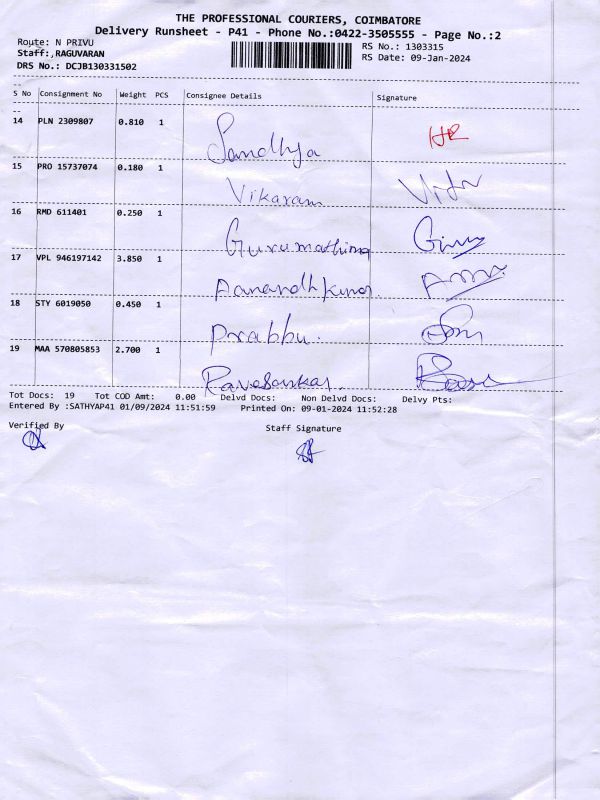 THE PROFESSIONAL COURIERS, COIMBATORE
Delivery Runsheet - P41 - Phone No.:0422-3505555 - Page No.:2
Route: N PRIVU
RS No.: 1303315
Staff:,RAGUVARAN
RS Date: 09-Jan-2024
DRS No.: DCJB130331502
S No Consignment No Weight PCS Consignee Details Signature
14 PLN 2309807 0.810 1 Sandhya HR
15 PRO 15737074 0.180 1 Vikaram
16 RMD 611401 0.250 1 Gurumathima
17 VPL 946197142 3.850 1 Aanandhkumar
18 STY 6019050 0.450 1 Prabhu.
19 MAA 570805853 2.700 1 Ravesankar.
Tot Docs: 19 Tot COD Amt: 0.00 Delvd Docs: Non Delvd Docs: Delvy Pts:
Entered By :SATHYAP41 01/09/2024 11:51:59 Printed On: 09-01-2024 11:52:28
Verified By
Staff Signature